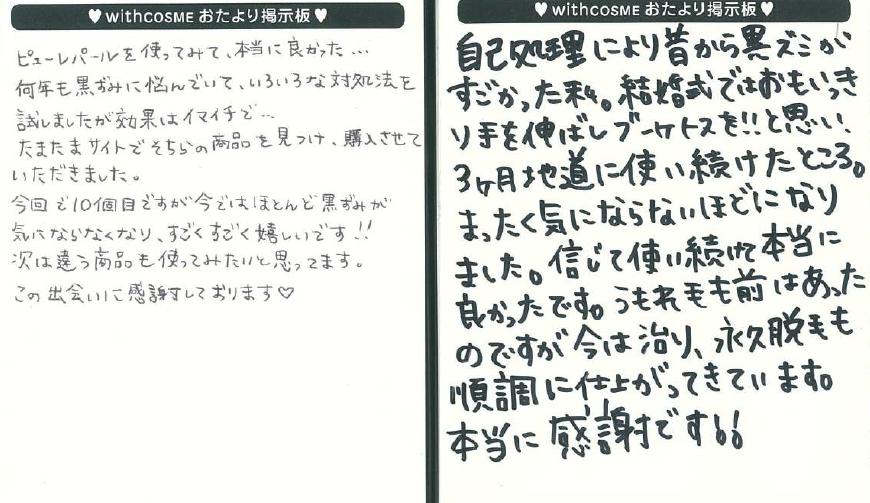 ♥ withCOSME おたより掲示板 ♥
ピューレパールを使ってみて、本当に良かった…
何年も黒ずみに悩んでいて、いろいろな対処法を
試しましたが効果はイマイチで…
たまたまサイトでそちらの商品を見つけ、購入させて
いただきました。
今回で10個目ですが今ではほとんど黒ずみが
気にならなくなり、すごくすごく嬉しいです!!
次は違う商品も使ってみたいと思ってます。
この出会いに感謝しております♡
♥ withCOSME おたより掲示板 ♥
自己処理により昔から黒ズミが
すごかった私。結婚式ではおもいっき
り手を伸ばしブーケトスを!!と思い、
3ヶ月地道に使い続けたところ。
まったく気にならないほどになり
ました。信じて使い続けて本当に
良かったです。うもれ毛も前はあった
のですが今は治り、永久脱毛も
順調に仕上がってきています。
本当に感謝です!!